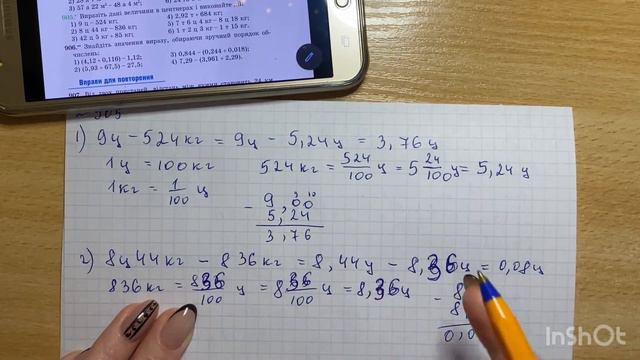 3) 57 а 22 м² - 48 а 4 м²;
905. Виразіть дані величини в центнерах і виконайте
1) 9 ц - 524 кг; 4) 2,92 т + 684 кг;
2) 8 ц 44 кг - 836 кг; 5) 7 т 6 ц 4 кг - 8 ц 18 кг;
3) 42 ц 5 кг + 85 кг; 6) 1 т 2 ц 3 кг - 1 т 15 кг.
906. Знайдіть значення виразу, обираючи зручний порядок об-
числень:
1) (4,12 + 0,116) - 1,12; 3) 0,844 - (0,244 + 0,018);
2) (5,93 + 67,5) - 27,5; 4) 7,29 - (3,961 + 2,29).
Вправи для повторення
907.
905
1) 9ц - 524кг = 9ц - 5,24ц = 3,76ц
1ц = 100кг 524кг = 524/100 ц = 5 24/100 ц = 5,24ц
1кг = 1/100 ц
9,00
- 5,24
3,76
2) 8ц 44кг - 836кг = 8,44ц - 8,36ц = 0,08ц
836кг = 836/100 ц = 8 36/100 ц = 8,36ц
InShOt